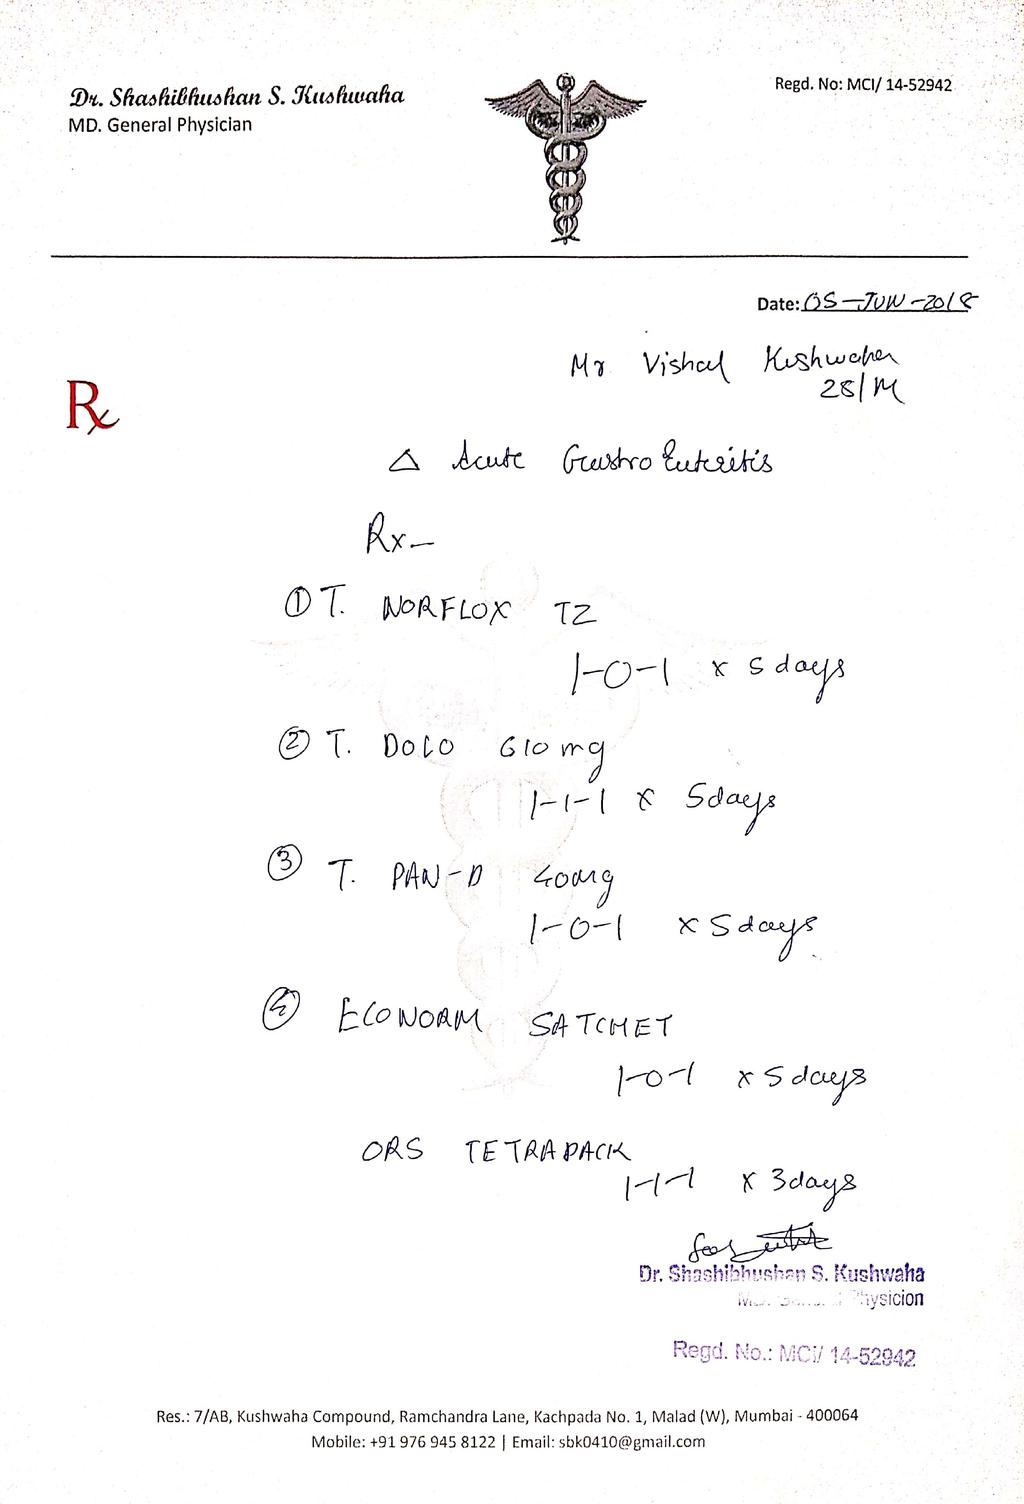 Dr. Shashibhushan S. Kushwaha
MD. General Physician
Regd. No: MCI/ 14-52942
Date: 05-JUN-2018
Mr Vishal Kushwaha
28/M
Rx
△ Acute Gastro Enteritis
Rx-
① T. NORFLOX TZ
1-0-1 x 5 days
② T. DOLO 610 mg
1-1-1 x 5days
③ T. PAN-D 40mg
1-0-1 x 5 days
④ ECONORM SATCHET
1-0-1 x 5 days
ORS TETRAPACK
1-1-1 x 3days
Dr. Shashibhushan S. Kushwaha
Physicion
Regd. No.: MCI/ 14-52942
Res.: 7/AB, Kushwaha Compound, Ramchandra Lane, Kachpada No. 1, Malad (W), Mumbai - 400064
Mobile: +91 976 945 8122 | Email: sbk0410@gmail.com